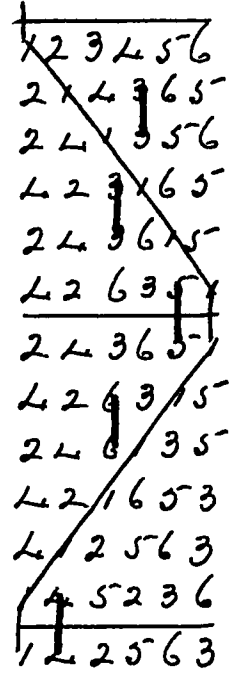 1 2 3 4 5 6
2 1 4 3 6 5
2 4 1 3 5 6
4 2 3 1 6 5
2 4 3 6 1 5
4 2 6 3 5 1
2 4 3 6 5 1
4 2 6 3 1 5
2 4 6 1 3 5
4 2 1 6 5 3
4 1 2 5 6 3
1 4 5 2 3 6
1 4 2 5 6 3